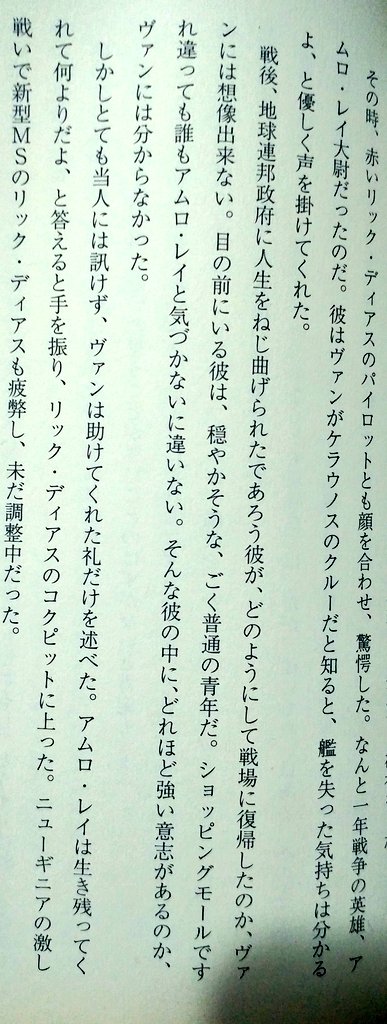 その時、赤いリック・ディアスのパイロットとも顔を合わせ、驚愕した。なんと一年戦争の英雄、ア
ムロ・レイ大尉だったのだ。彼はヴァンがケラウノスのクルーだと知ると、艦を失った気持ちは分かる
よ、と優しく声を掛けてくれた。
戦後、地球連邦政府に人生をねじ曲げられたであろう彼が、どのようにして戦場に復帰したのか、ヴァ
ンには想像出来ない。目の前にいる彼は、穏やかそうな、ごく普通の青年だ。ショッピングモールです
れ違っても誰もアムロ・レイと気づかないに違いない。そんな彼の中に、どれほど強い意志があるのか、
ヴァンには分からなかった。
しかしとても当人には訊けず、ヴァンは助けてくれた礼だけを述べた。アムロ・レイは生き残ってく
れて何よりだよ、と答えると手を振り、リック・ディアスのコクピットに上った。ニューギニアの激し
戦いで新型ＭＳのリック・ディアスも疲弊し、未だ調整中だった。